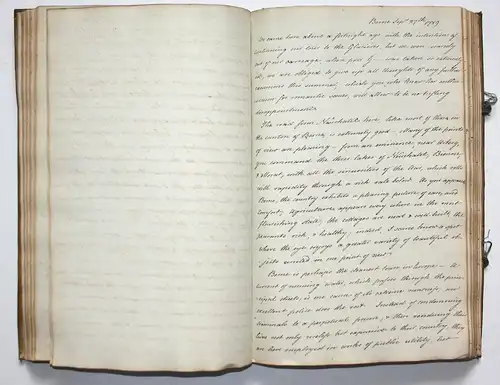 Berne Sepr 27th 1789
We came here about a fortnight ago with the intention of
continuing our tour to the Glacieres, but we were scarcely
out of our carriage when poor J— was taken so extremely
ill, we are obliged to give up all thoughts of any further
excursions this summer, which you who know our enthu-
siasm for romantic scenes, will allow to be no trifling
disappointment.
The road from Neuchatel here, like most of those in
the canton of Berne, is extremely good. Many of the points
of view are pleasing — from an eminence, near
you command the three lakes of Neuchatel, Bienne,
& Morat, with all the of the Aar, which rolls
with rapidity through a rich vale below. As you approach
Berne, the country exhibits a pleasing picture of ease, and
comfort; Agriculture appears every where in the most
flourishing state, the cottages are neat & well built, the
peasants rich & healthy, indeed, I scarce know a spot
where the eye enjoys a greater variety of beautiful ob-
jects united in one point of view.
Berne is perhaps the cleanest town in Europe — A
current of running water, which passes through the prin-
cipal streets, is one cause of its extreme neatness, an
excellent police does the rest. Instead of condemning
criminals to a perpetual prison, & thus rendering their
lives not only useless but expensive to their country, they
are here employed in works of public utility, but